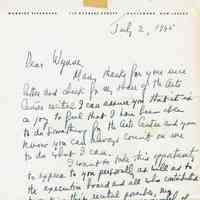 July 2, 1965
Dear Wynne,
Many thanks for your nice
letter and check for my share of the Arts
Center recital. I can assure you that it is
a joy to feel that I have been able
to do something for the Arts Center and you
know you can always count on me
to do what I can.
I want to take this opportunity
to express to you personally as well as to
the executive board and all who contributed
this recital possible, my